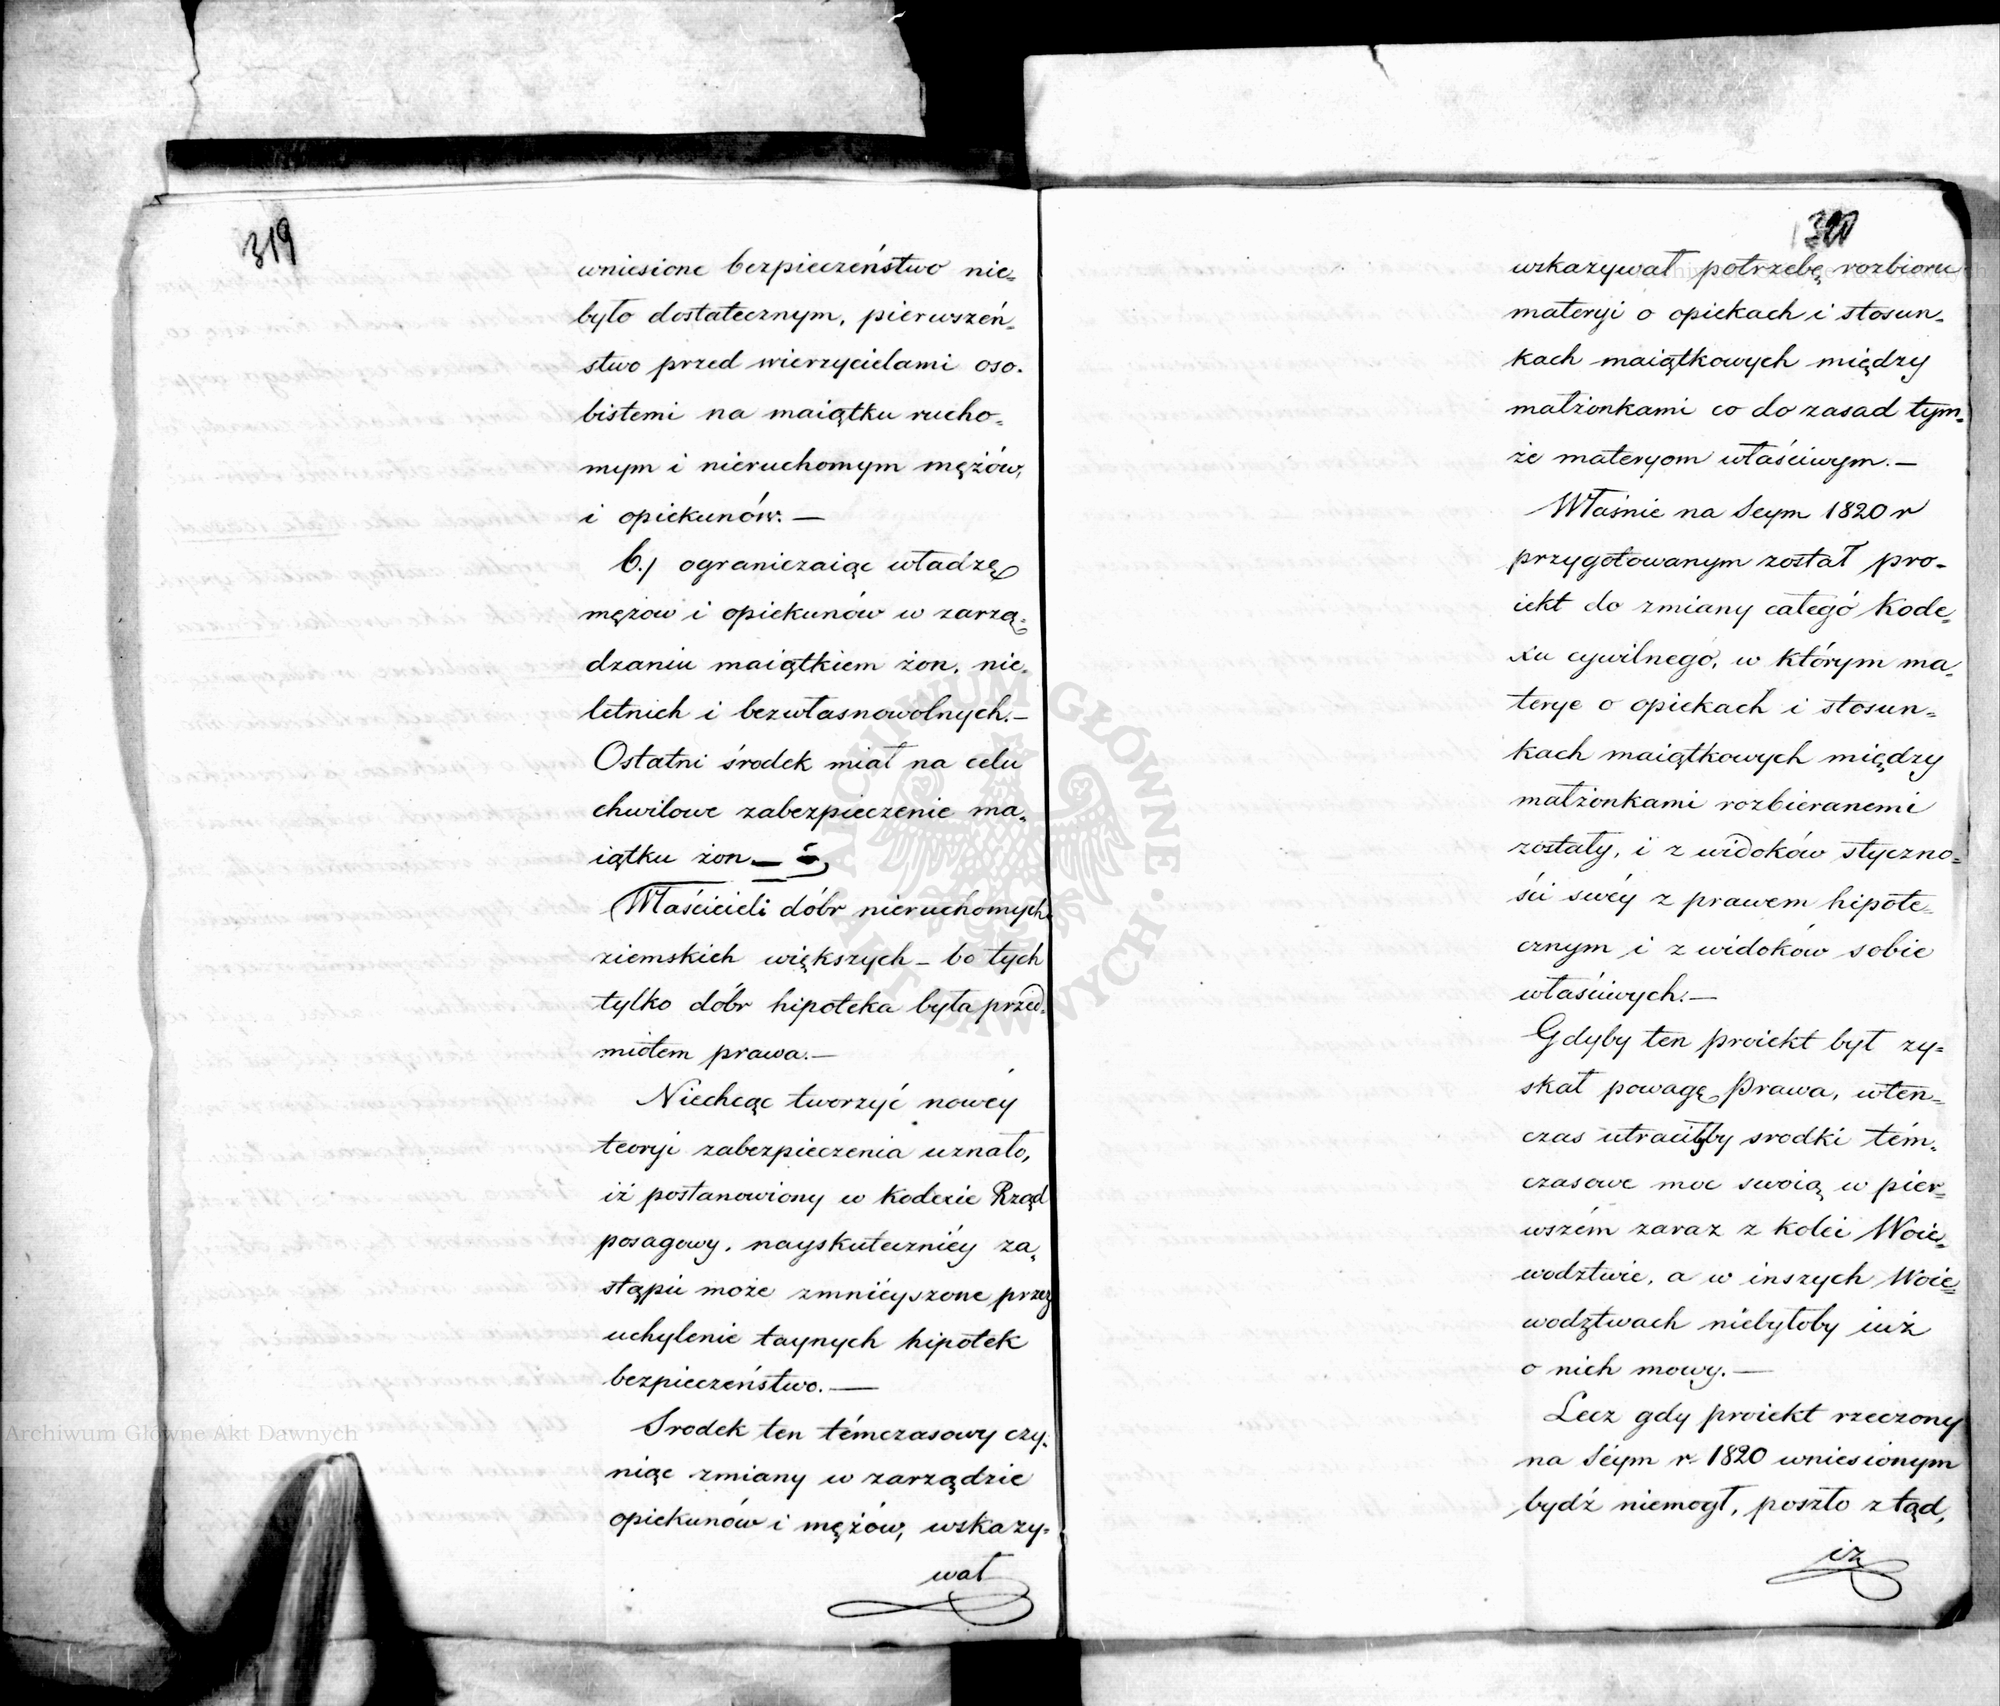 319
wniesione bezpieczeństwo nie-
było dostatecznym, pierwszeń-
stwo przed wierzycielami oso-
bistemi na maiątku rucho-
mym i nieruchomym mężów,
i opiekunów. —
b.) ograniczaiąc władzę
mężow i opiekunów w zarzą-
dzaniu maiątkiem żon, nie-
letnich i bezwłasnowolnych. —
Ostatni środek miał na celu
chwilowe zabezpieczenie ma-
iątku żon —
Właścicieli dóbr nieruchomych
ziemskich większych – bo tych
tylko dóbr hipoteka była przed-
miotem prawa. —
Niechcąc tworzyć nowéy
teoryi zabezpieczenia uznało,
iż postanowiony w kodexie Rząd
posagowy, nayskutecznièy za-
stąpić może zmnièyszone przez
uchylenie taynych hipotek
bezpieczeństwo. —
Srodek ten témczasowy czy-
niąc zmiany w zarządzie
opiekunów i mężów, wskazy-
wał
320
wskazywał potrzebę rozbioru
materyi o opiekach i stosun-
kach maiątkowych między
małżonkami co do zasad tym-
że materyom właściwym. —
Właśnie na Seym 1820 r
przygotowanym został pro-
iekt do zmiany całegó kode-
xu cywilnego, w którym ma-
terye o opiekach i stosun-
kach maiątkowych między
małżonkami rozbieranemi
zostały, i z widoków styczno-
ści swéy z prawem hipote-
cznym i z widoków sobie
właściwych. —
Gdyby ten proiekt był zy-
skał powagę Prawa, wten-
czas utraciłyby srodki tém-
czasowe moc swoią w pier-
wszém zaraz z kolei Woie-
wodztwie, a w inszych Woie-
wodztwach niebyłoby iuż
o nich mowy. —
Lecz gdy proiekt rzeczony
na Séym r. 1820 wniesionym
bydź niemogł, poszło ztąd,
iż
Archiwum Główne Akt Dawnych
ARCHIWUM GŁÓWNE AKT DAWNYCH